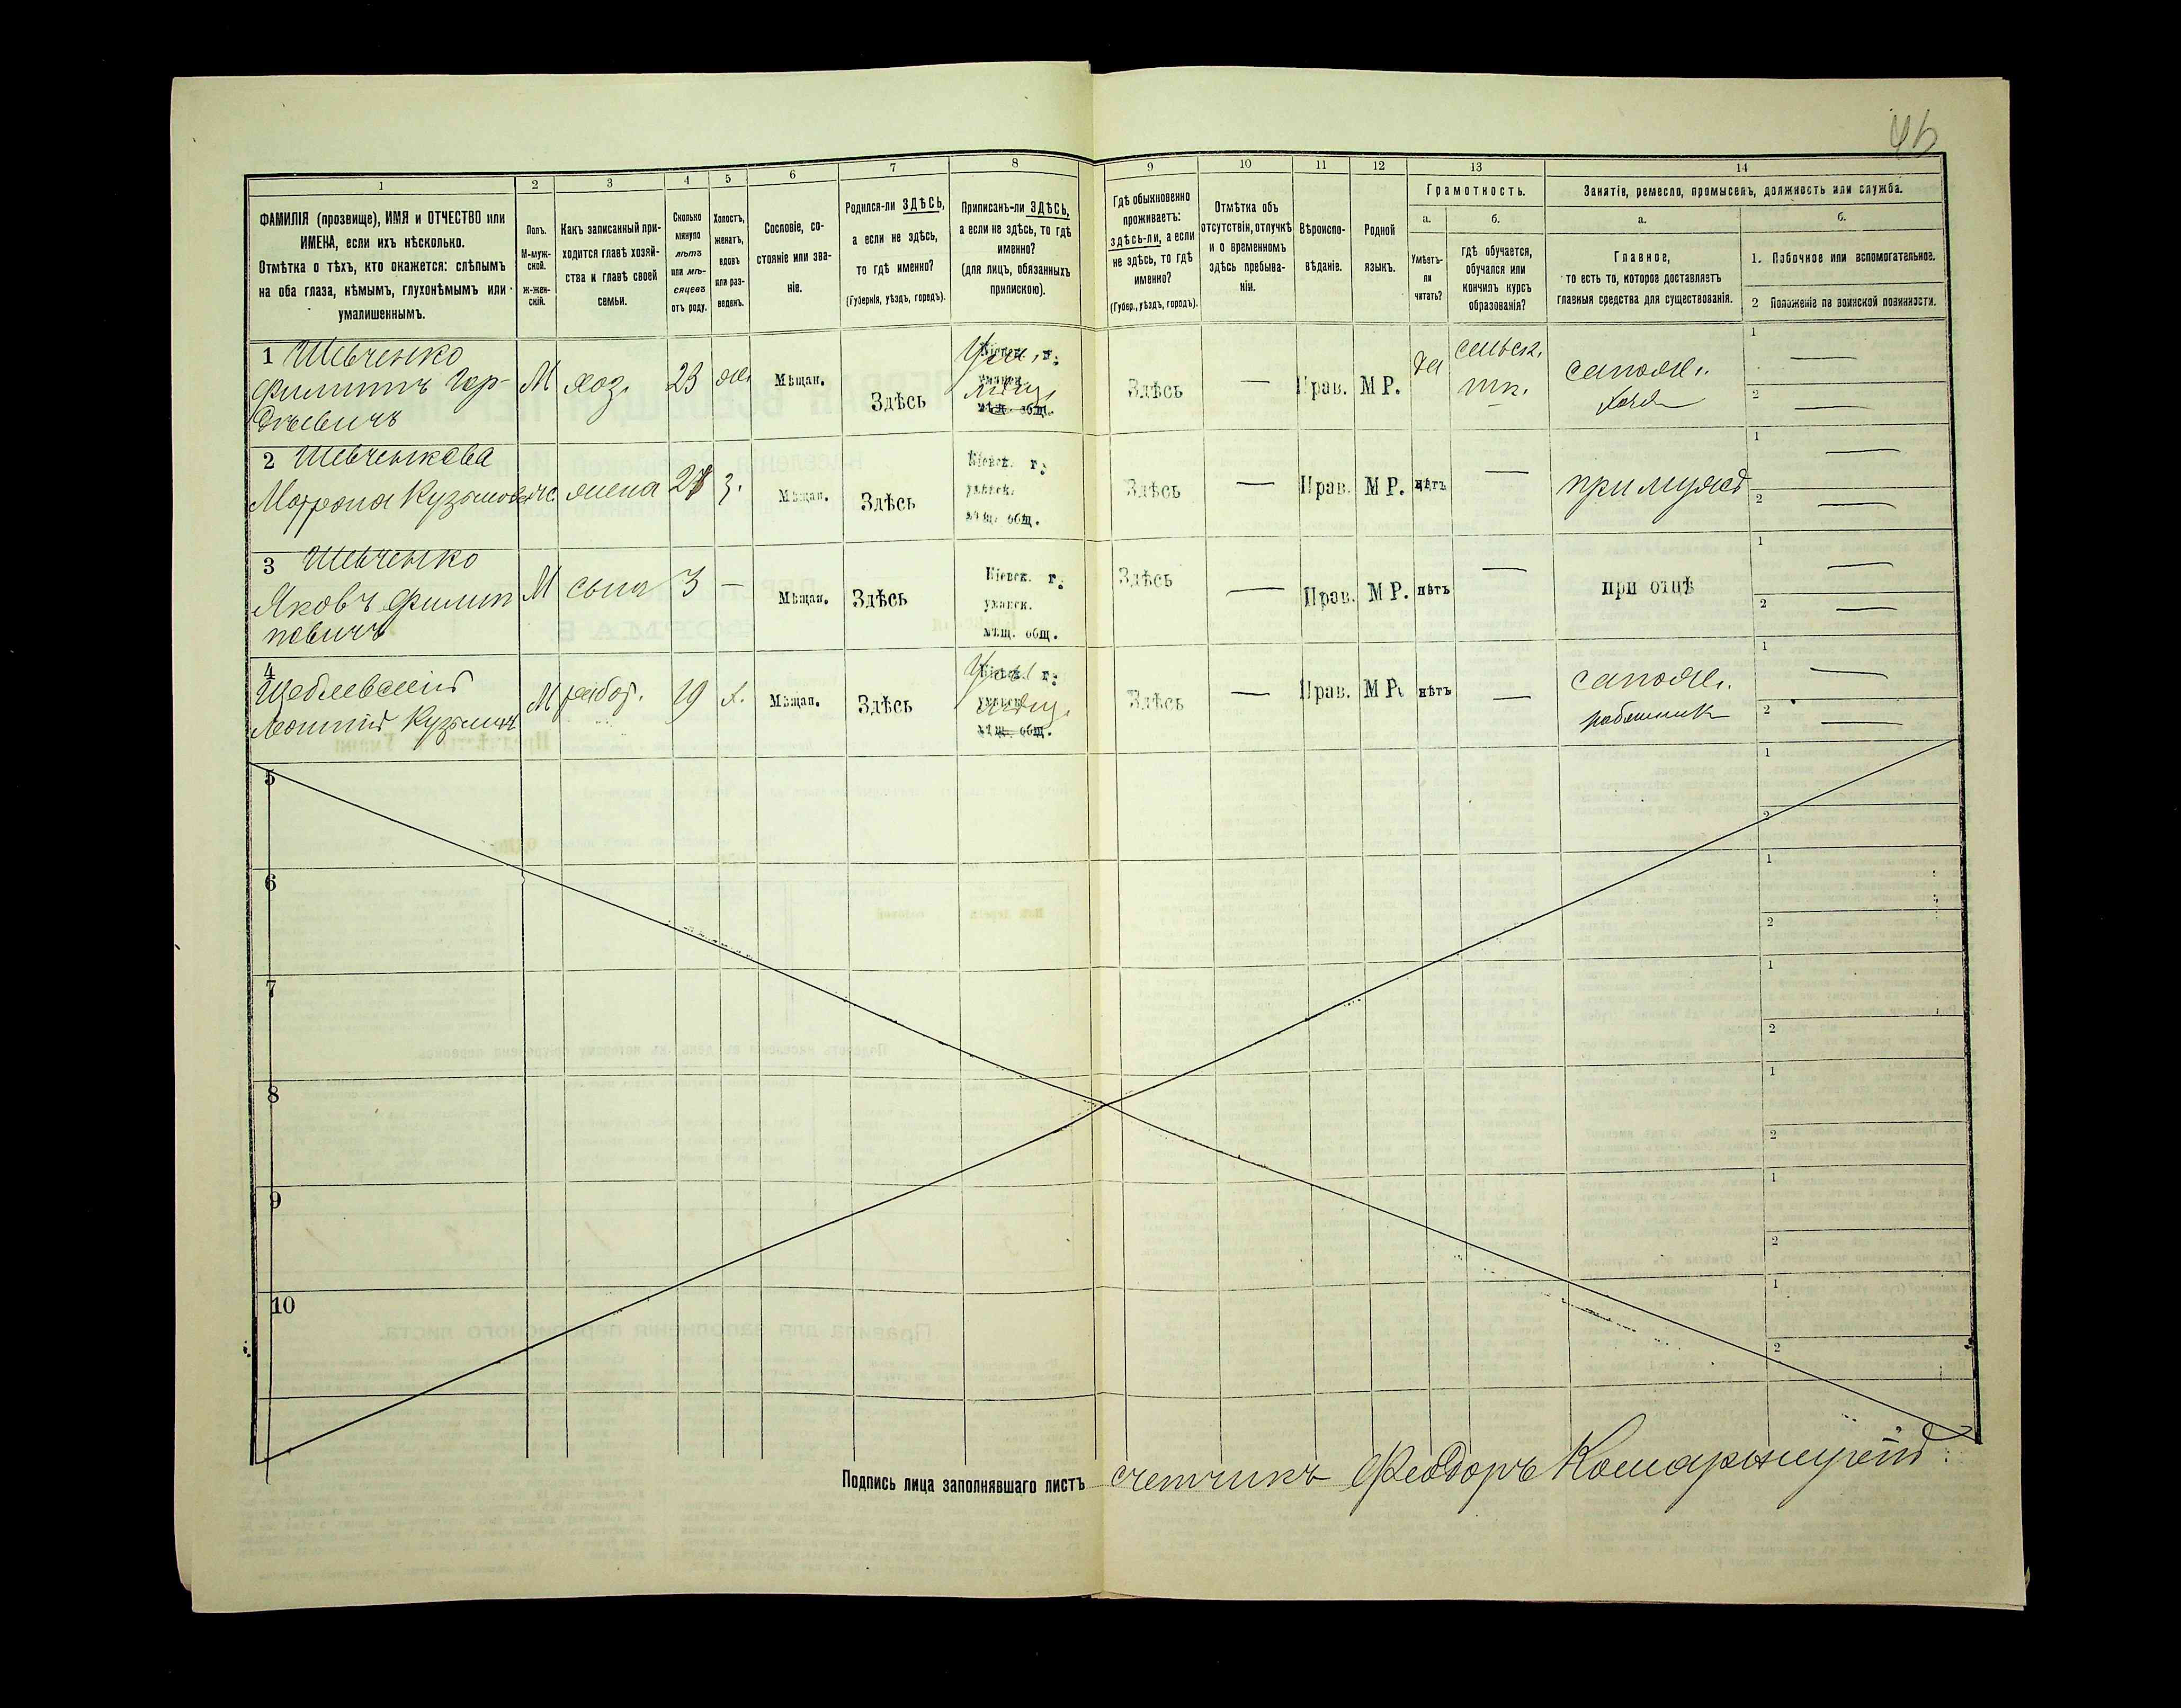 46
1
2
3
4
5
6
7
8
9
10
11
12
13
14
ФАМИЛІЯ (прозвище), ИМЯ и ОТЧЕСТВО или
ИМЕНА, если ихъ нѣсколько.
Отмѣтка о тѣхъ, кто окажется: слѣпымъ
на оба глаза, нѣмымъ, глухонѣмымъ или
умалишеннымъ.
Полъ.
М-муж-
ской.
ж-жен-
скій.
Какъ записанный при-
ходится главѣ хозяй-
ства и главѣ своей
семьи.
Сколько
минуло
лѣтъ
или мѣ-
сяцевъ
отъ роду.
Холостъ,
женатъ,
вдовъ
или раз-
веденъ.
Сословіе, со-
стояніе или зва-
ніе.
Родился-ли ЗДѢСЬ,
а если не здѣсь,
то гдѣ именно?
(Губернія, уѣздъ, городъ).
Приписанъ-ли ЗДѢСЬ,
а если не здѣсь, то гдѣ
именно?
(для лицъ, обязанныхъ
припискою).
Гдѣ обыкновенно
проживаетъ:
здѣсь-ли, а если
не здѣсь, то гдѣ
именно?
(Губер., уѣздъ, городъ).
Отмѣтка объ
отсутствіи, отлучкѣ
и о временномъ
здѣсь пребыва-
ніи.
Вѣроиспо-
вѣданіе.
Родной
языкъ.
Грамотность.
а.
Умѣетъ-
ли
читать?
б.
гдѣ обучается,
обучался или
кончилъ курсъ
образованія?
Занятіе, ремесло, промыселъ, должность или служба.
а.
Главное,
то есть то, которое доставляетъ
главныя средства для существованія.
б.
1. Побочное или вспомогательное.
2 Положеніе по воинской повинности.
1 Шевченко
Филиппъ Гор-
дѣевичъ
М
хоз.
23
же.
Мѣщан.
Здѣсь
Кіевск. г.
уманск.
мѣщ. общ.
Здѣсь
—
Прав.
М Р.
да
сельск.
шк.
сапожн.
хозя
1 —
2 —
2 Шевченкова
Матрона Кузьмовна
ж
жена
27
з.
Мѣщан.
Здѣсь
Кіевск. г.
уманск.
мѣщ. общ.
Здѣсь
—
Прав.
М Р.
нѣтъ
—
при мужѣ
1 —
2 —
3 Шевченко
Яковъ Филип
повичъ
М
сынъ
3
—
Мѣщан.
Здѣсь
Кіевск. г.
уманск.
мѣщ. общ.
Здѣсь
—
Прав.
М Р.
нѣтъ
—
при отцѣ
1 —
2 —
4
Щеблевскій
Леонтій Кузьмичъ
М
работ.
19
х.
Мѣщан.
Здѣсь
Кіевск. г.
уманск.
мѣщ. общ.
Здѣсь
—
Прав.
М Р.
нѣтъ
—
сапожн.
работникъ
1 —
2 —
5
1
2
6
1
2
7
1
2
8
1
2
9
1
2
10
1
2
Подпись лица заполнявшаго листъ счетчикъ Феодоръ Комарницкій